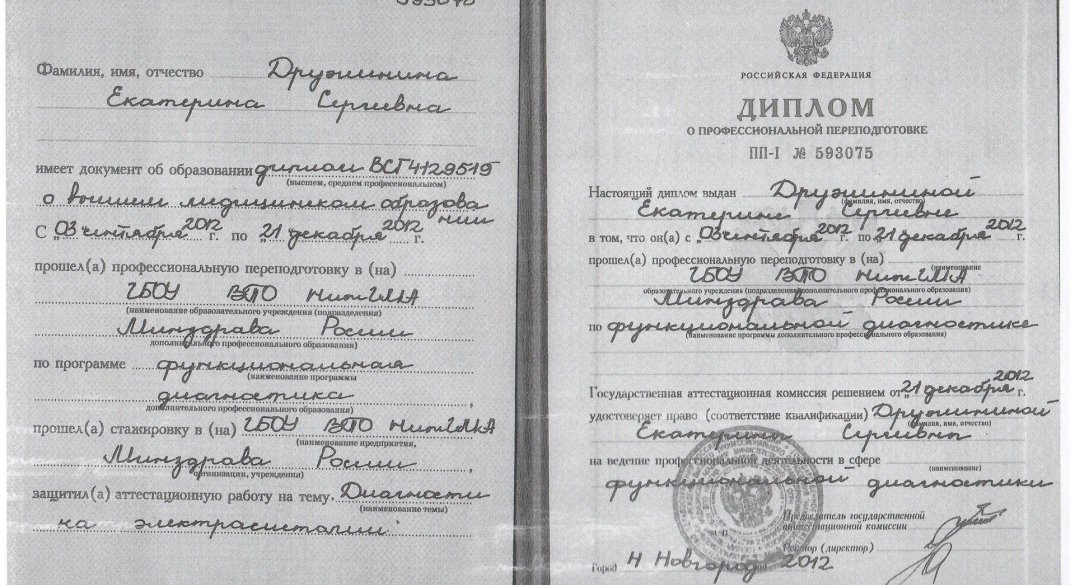 593075
Фамилия, имя, отчество Дружинина
Екатерина Сергеевна
имеет документ об образовании диплом ВСГ4129519
(высшем, среднем профессиональном)
о высшем медицинском образова
нии
С „03 сентября 2012 г. по „21 декабря 2012 г.
прошел(а) профессиональную переподготовку в (на)
ГБОУ ВПО НижГМА
(наименование образовательного учреждения (подразделения)
Минздрава России
дополнительного профессионального образования)
по программе функциональная
(наименование программы
диагностика ,
дополнительного профессионального образования)
прошел(а) стажировку в (на) ГБОУ ВПО НижГМА
(наименование предприятия,
Минздрава России ,
организации, учреждения)
защитил(а) аттестационную работу на тему. Диагности
(наименование темы)
ка электрасистолии
РОССИЙСКАЯ ФЕДЕРАЦИЯ
ДИПЛОМ
О ПРОФЕССИОНАЛЬНОЙ ПЕРЕПОДГОТОВКЕ
ПП-I № 593075
Настоящий диплом выдан Дружининой
(фамилия, имя, отчество)
Екатерине Сергеевне
в том, что он(а) с „03 сентября 2012 г. по „21 декабря 2012 г.
прошел(а) профессиональную переподготовку в (на)
(наименование
ГБОУ ВПО НижГМА
образовательного учреждения (подразделения) дополнительного профессионального образования)
Минздрава России
по функциональной диагностике
(наименование программы дополнительного профессионального образования)
Государственная аттестационная комиссия решением от „21 декабря 2012 г.
удостоверяет право (соответствие квалификации) Дружининой
(фамилия, имя, отчество)
Екатерины Сергеевны
на ведение профессиональной деятельности в сфере
(наименование)
функциональной диагностики
Председатель государственной
аттестационной комиссии
Ректор (директор)
Город Н Новгород 2012